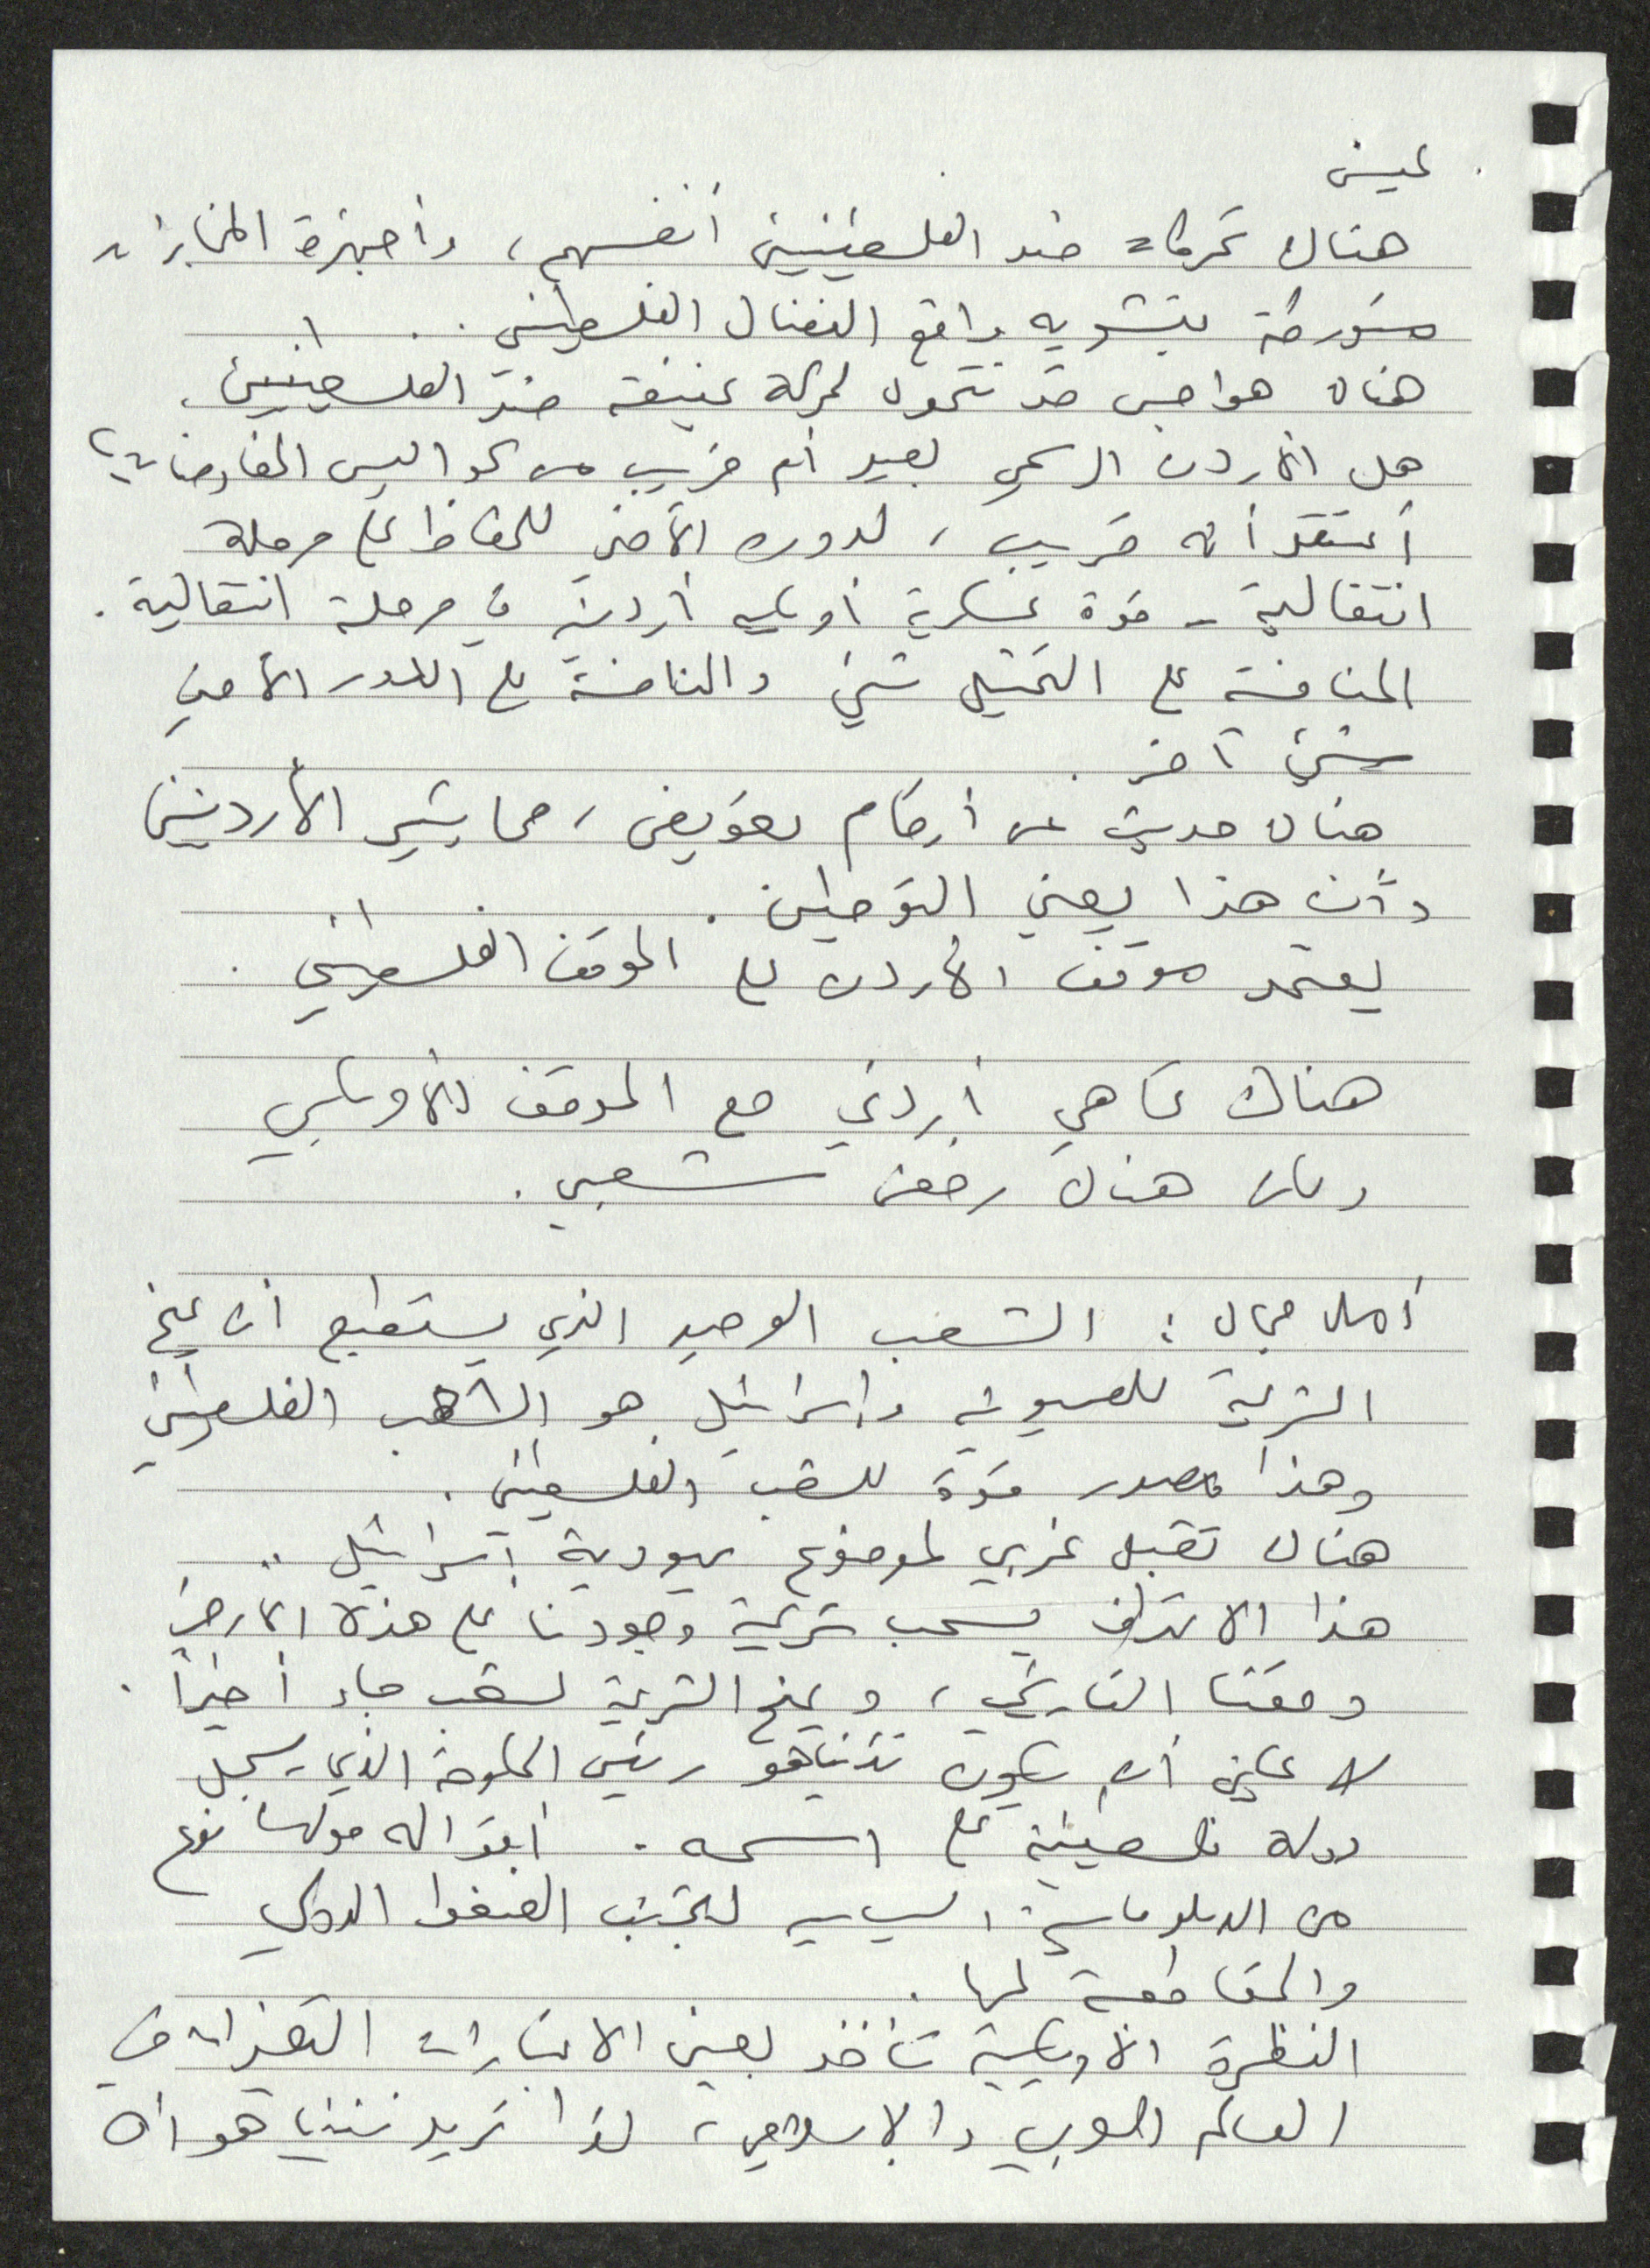 لميس
هناك تحركات ضد الفلسطينيين أنفسهم، وأجهزة المخابرات
متورطة بتشويه واقع النضال الفلسطيني ..
هناك هواجس قد تتحول لحركة عنيفة ضد الفلسطينيين.
هل الأردن الرسمي بعيد أم قريب من كواليس المفاوضات؟
أعتقد أنه قريب، لدوره الأمني للحفاظ على مرحلة
انتقالية - قوة عسكرية أو أردنية في مرحلة انتقالية.
المنافسة على التمثيل شيء والمنافسة على الدور الأمني
شيء آخر.
هناك حديث عن أرقام تعويض، مما يثير الأردنيين
وأن هذا يعني التوطين.
يعتمد موقف الأردن على الموقف الفلسطيني.
هناك تماهي أردني مع الموقف الأمريكي
وكان هناك رفض شعبي.
أمل جمال: الشعب الوحيد الذي يستطيع أن يمنح
الشرعية للصهيونية وإسرائيل هو الشعب الفلسطيني
وهذا مصدر قوة للشعب الفلسطيني.
هناك تقبل غربي لموضوع يهودية إسرائيل ..
هذا الاعتراف يسحب شرعية وجودنا على هذه الأرض
وحقنا التاريخي، ويمنح الشرعية لشعب جاء أخيراً.
لا يمكن أن يكون نتنياهو رئيس الحكومة الذي يسجل
دولة فلسطينية على اسمه. أقواله حولها نوع
من الدبلوماسية السياسية لتجنب الضغط الدولي
والمقاطعة لها.
النظرة الأمريكية تأخذ بعين الاعتبارات التغيرات في
العالم العربي والإسلامي، لذا تريد نتنياهو أن